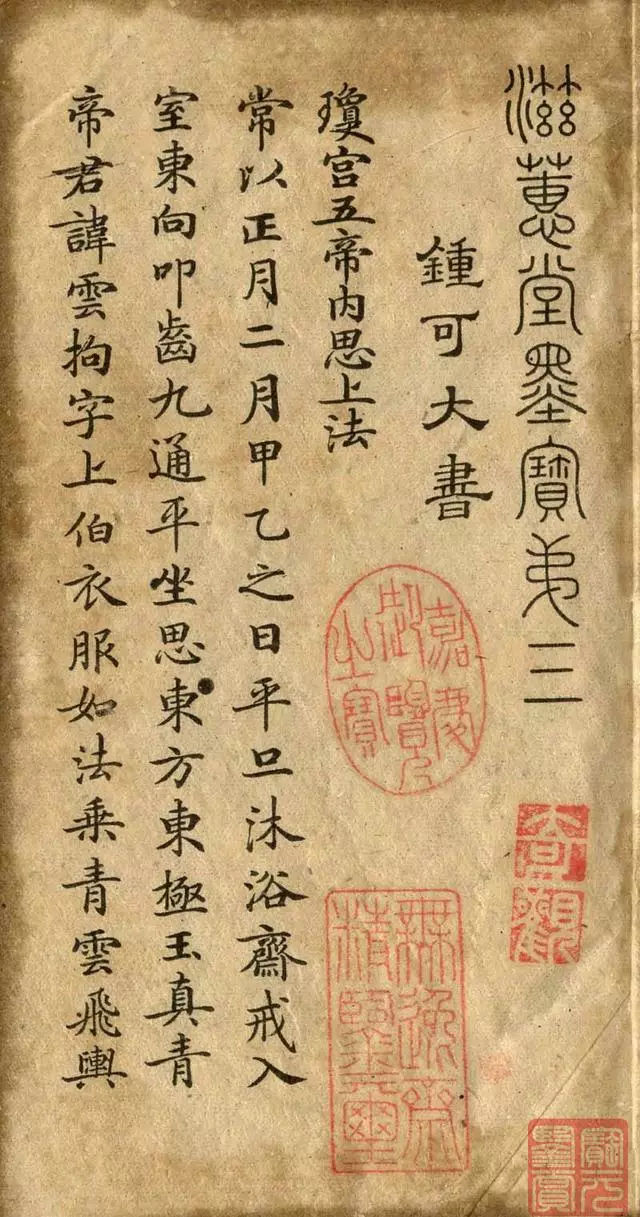 滋蕙堂墨寶弟三
鍾可大書
瓊宮五帝內思上法
常以正月二月甲乙之日平旦沐浴齋戒入
室東向叩齒九通平坐思東方東極玉真青
帝君諱雲拘字上伯衣服如法乘青雲飛輿
嘉慶御覽之寶
無逸齋精鑒璽
大觀